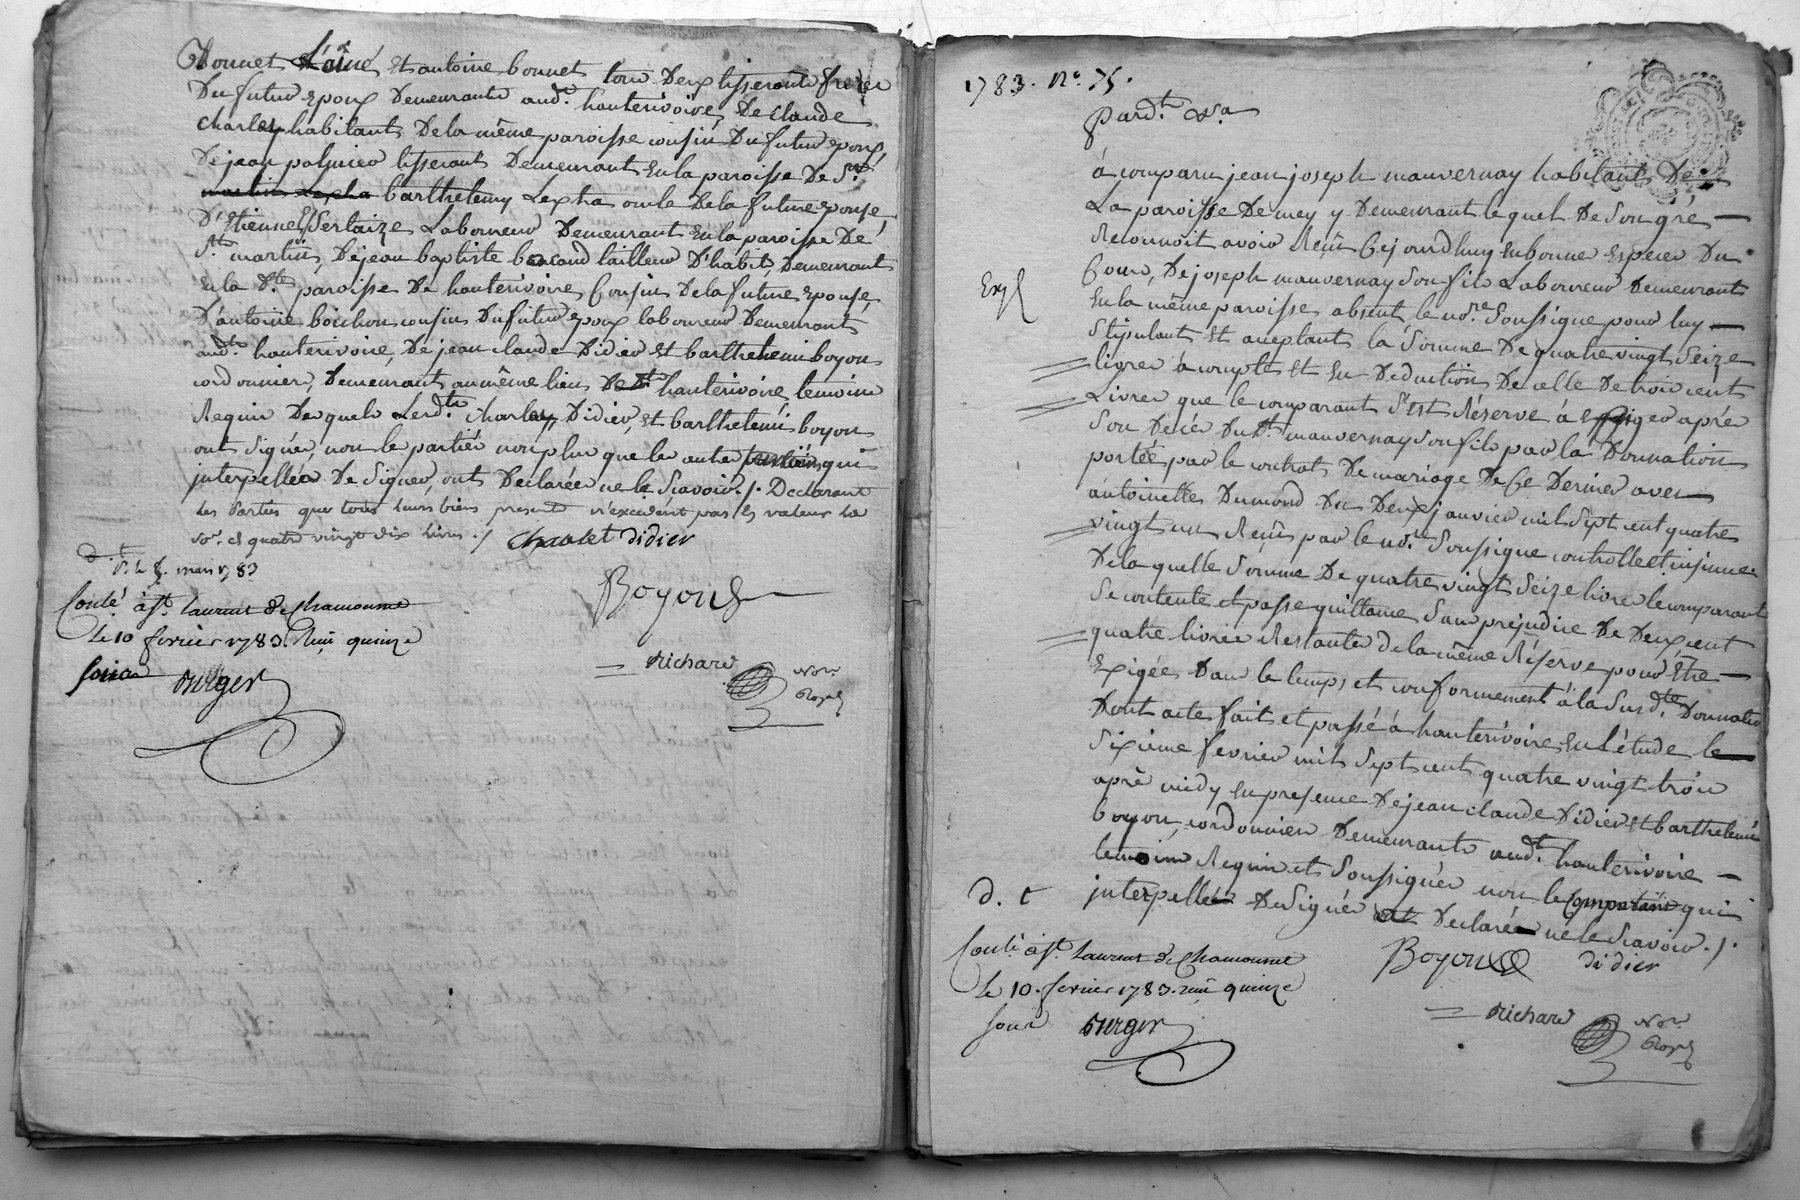 Bonnet L'aîné et antoine bonnet tous Deux tisserants freres
Du futur Epoux Demeurants aud.t hauterivoire, De claude
charles habitant De la même paroisse cousin Du futur epoux,
De jean palmier tisserant Demeurant en la paroisse De S.t
barthelemy Lespha oncle De la future epouse,
D'Etienne Sertaize Laboureur Demeurant en la paroisse De
S.t martin, De jean baptiste tailleur D'habit, Demeurant
en la D.te paroisse De hauterivoire, Cousin De la future epouse,
D'antoine boichon cousin Du futur epoux laboureur Demeurant
aud.t hauterivoire, De jean claude Didier et barthelemi boyon
cordonniers, Demeurants au même lieu De hauterivoire temoins
Requis Desquels Lesd.ts charles, Didier, et barthelemi boyon
ont signés, non les parties non plus que les autres temoins qui
interpellés De signer, ont Declarés ne le Scavoir ./. Declarant
Les Parties que tous leurs biens present n'excedent pas la valeur de
et quatre vingt dix Livres ./. charlet didier
mars 1783
Boyon
Conlé à St. Laurent de Chamousset
Le 10 fevrier 1783. Reçu quinze
Richard Nore.
Royal
sous Burger
1783. N.o 75.
Pard.t &.a
à comparu jean joseph mauvernay habitant De
La paroisse De mey y Demeurant lequel De son gré
Reconnoit avoir Reçu Cejourd'huy en bonnes Especes Du
Exp.
Cours, De joseph mauvernay son fils Laboureur Demeurant
en la même paroisse absent, le no.re Soussigné pour luy
stipulant et aceptant la Somme De quatre vingt Seize
livres à compte et en Deduction De celle De trois cent
Livres que le comparant s'est Réservé à Exiger après
son Decés Dud.t mauvernay son fils par la Donnation
portée par le contrat De mariage De Ce Dernier avec
antoinette Dumond Du Deux janvier mil sept cent quatre
vingt un Reçu par le no.re Soussigné controllé et insinué
De la quelle somme De quatre vingt Seize livres le comparant
Se contente et passe quittance sans préjudice De Deux cent
quatre livres Restantes de la même Réserve pour Etre
Exigées Dans les temps et conformement à la Susd.te Donnation
Dont acte fait et passé à hauterivoire en l'étude le
sixieme fevrier mil sept cent quatre vingt trois
après midy en presence De jean claude Didier et barthelemi
boyon, cordonniers Demeurants aud.t hauterivoire
temoins Requis et Soussignés non le Comparant qui
d. t interpellé De signer a Declaré ne le Scavoir ./.
Conlé à St. Laurent de Chamousset
Boyon didier
le 10. fevrier 1783. reçu quinze
sous Burger
Richard Nore.
Royal